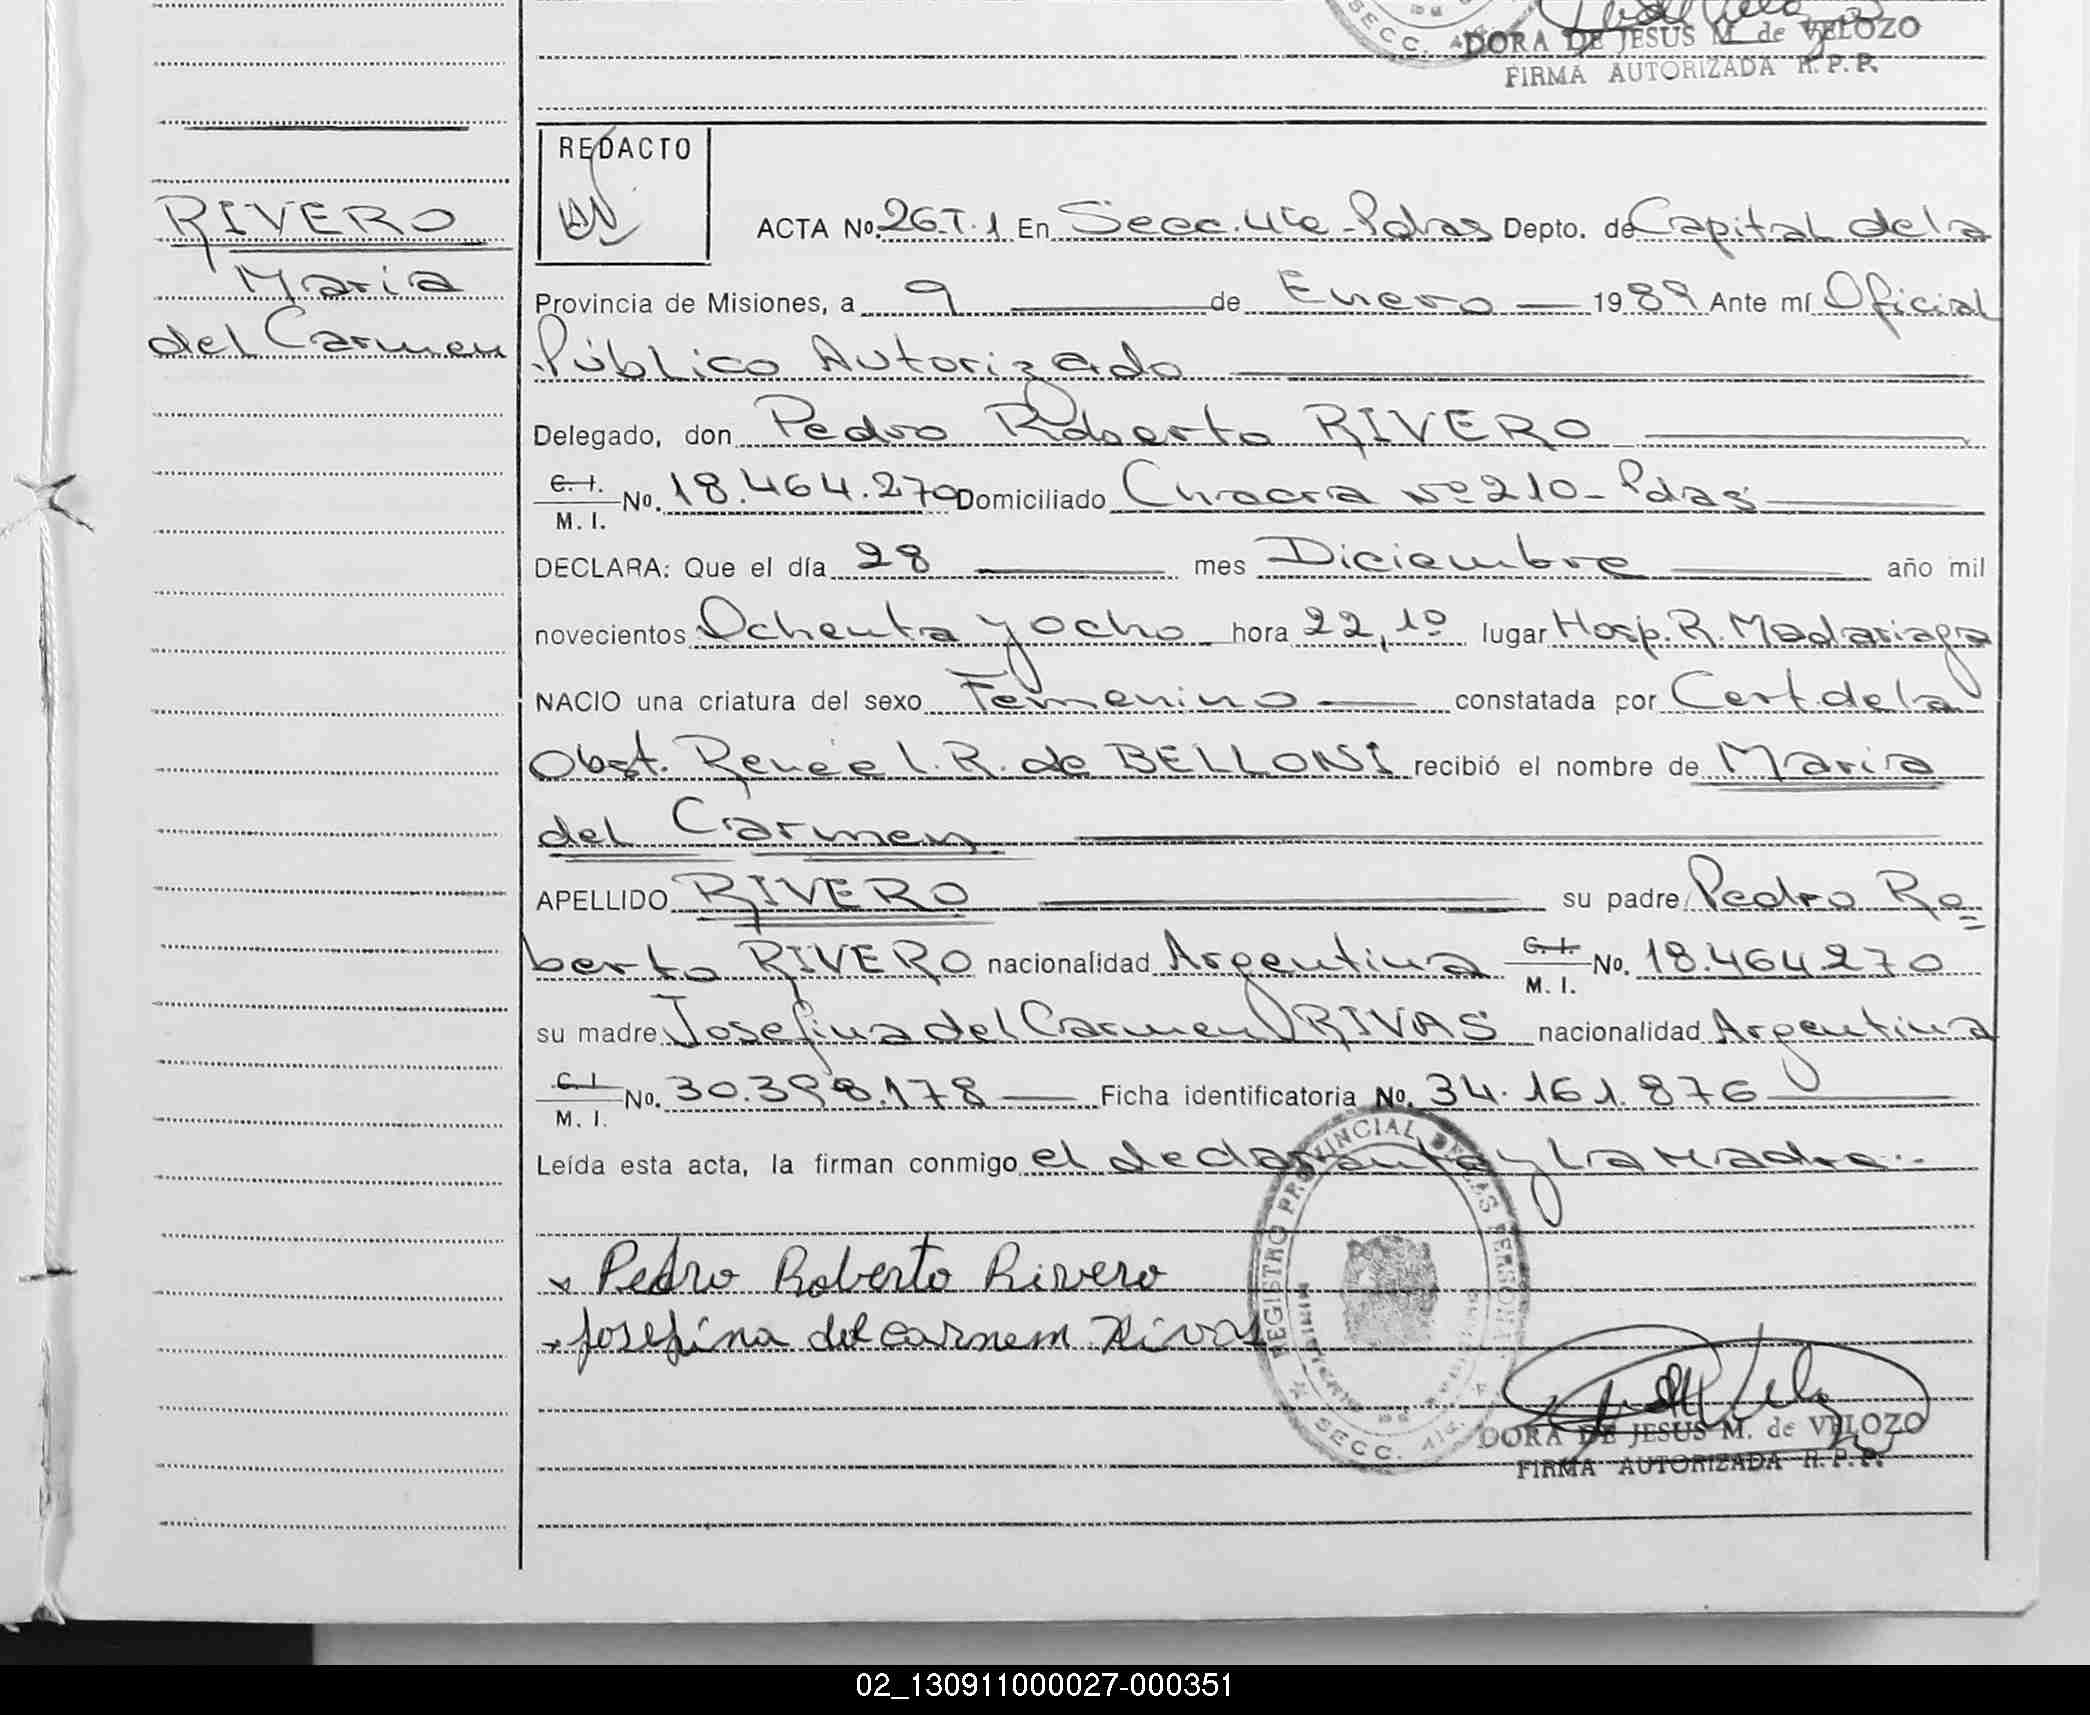 DORA DE JESUS M. de VELOZO
FIRMA AUTORIZADA R. P. P.
RIVERO
Maria
del Carmen
REDACTO
ACTA Nº. 26-T.1 En Secc. 4ta - Pdas Depto. de Capital de la
Provincia de Misiones, a 9 de Enero 1989 Ante mí Oficial
Público Autorizado
Delegado, don Pedro Roberto RIVERO
C. I.
M. I.
Nº. 18.464.270 Domiciliado Chacra Nº 210 - Pdas
DECLARA: Que el día 28 mes Diciembre año mil
novecientos Ochenta y ocho hora 22,10 lugar Hosp. R. Madariaga
NACIO una criatura del sexo Femenino constatada por Cert. de la
Obst. Renée l. R. de BELLONI recibió el nombre de Maria
del Carmen
APELLIDO RIVERO su padre Pedro Ro=
berto RIVERO nacionalidad Argentina C. I. M. I. Nº. 18.464.270
su madre Josefina del Carmen RIVAS nacionalidad Argentina
C. I.
M. I.
Nº. 30.398.178 Ficha identificatoria Nº. 34.161.876
Leída esta acta, la firman conmigo el declarante y la Madre..
REGISTRO PROVINCIAL DE LAS PERSONAS
SECC. 4ta.
x Pedro Roberto Rivero
x Josefina del carmem Rivas
DORA DE JESUS M. de VELOZO
FIRMA AUTORIZADA R. P. P.
02_130911000027-000351